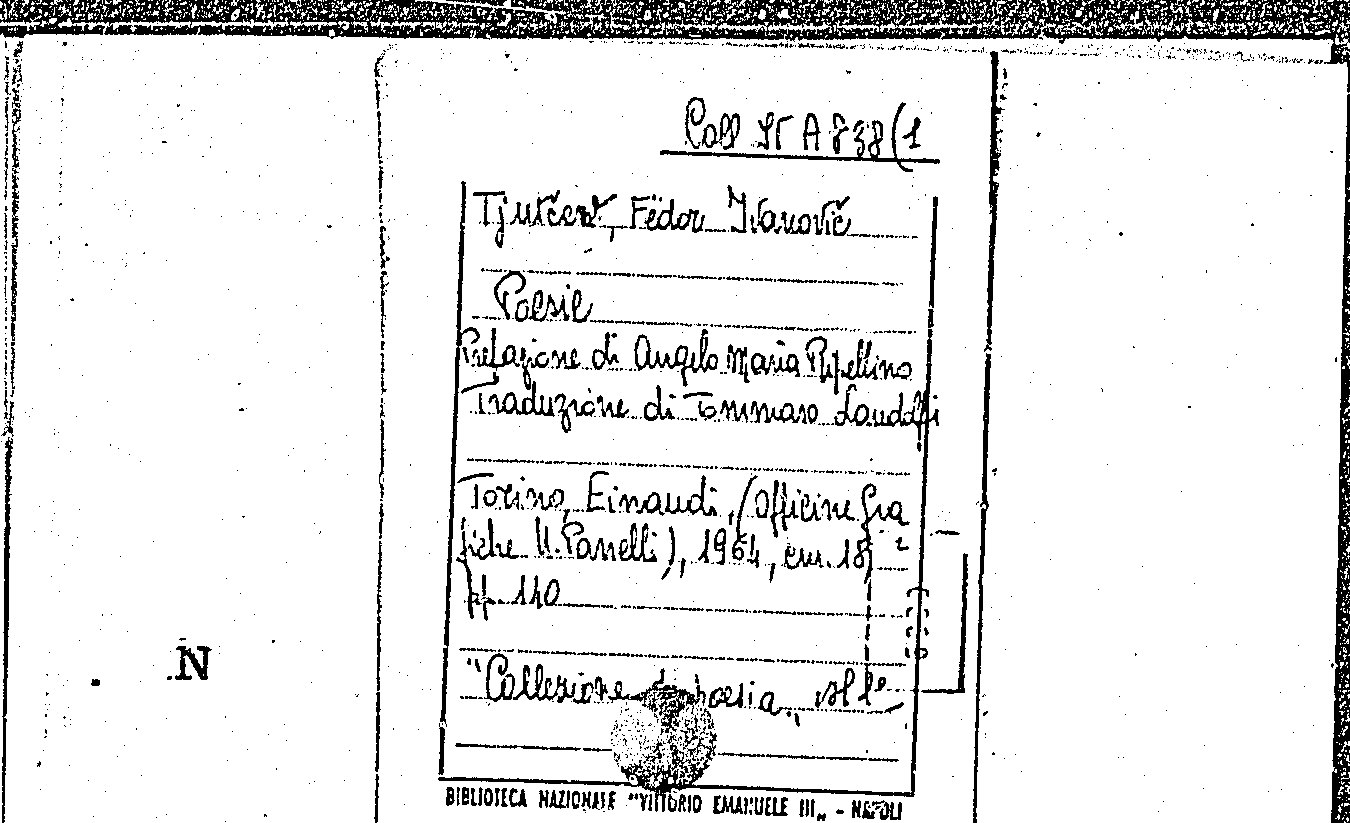 Coll It A 838(1
Tjutčev, Fëdor Ivanovič
Poesie
Prefazione di Angelo Maria Ripellino
Traduzione di Tommaso Landolfi
Torino, Einaudi, (Officine Gra
fiche U. Panelli), 1964, cm. 18,
pp. 140
N
"Collezione di poesia„
BIBLIOTECA NAZIONALE "VITTORIO EMANUELE III„ - NAPOLI